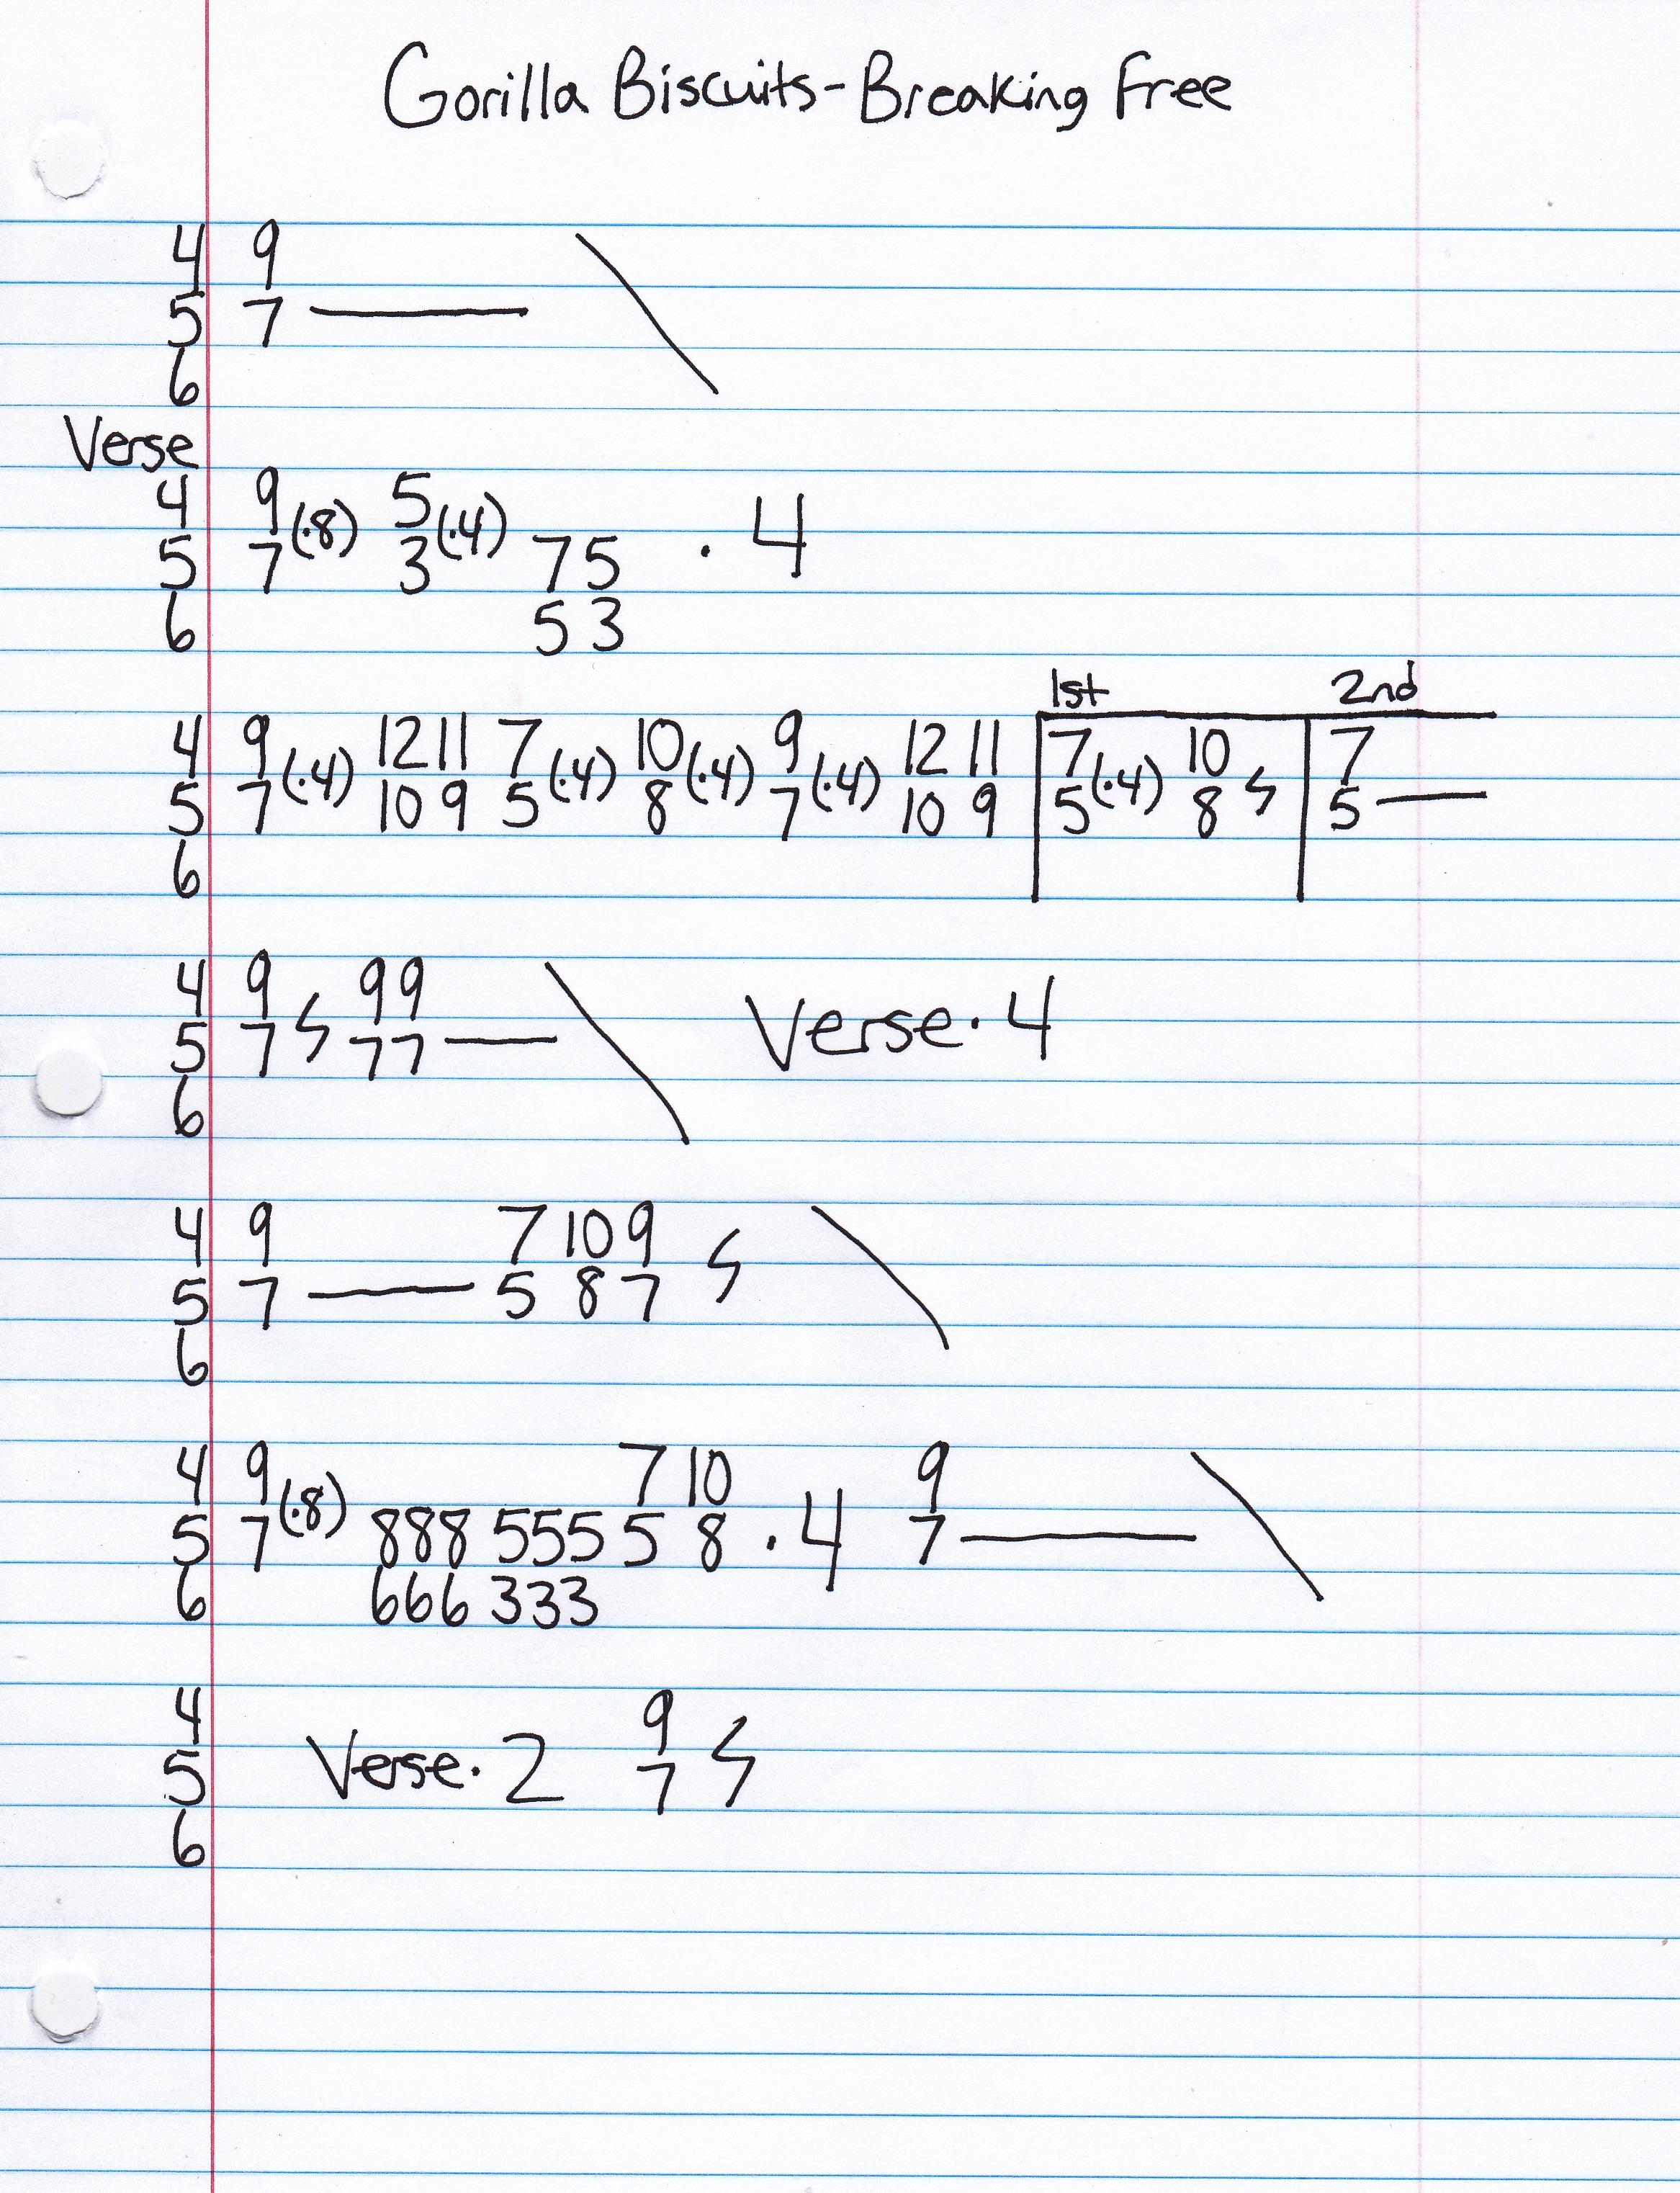 Gorilla Biscuits-Breaking Free
4 9
5 7 ——
6
Verse
4 9 5
5 7 (·8) 3 (·4) 7 5 · 4
6 5 3
1st 2nd
4 9 12 11 7 10 9 12 11 7 10 7
5 7 (·4) 10 9 5 (·4) 8 (·4) 7 (·4) 10 9 5 (·4) 8 5 ——
6
4 9 9 9
5 7 7 7 —— Verse · 4
6
4 9 7 10 9
5 7 —— 5 8 7
6
4 9 7 10 9
5 7 (·8) 8 8 8 5 5 5 5 8 · 4 7 ——
6 6 6 6 3 3 3
4 9
5 Verse · 2 7
6